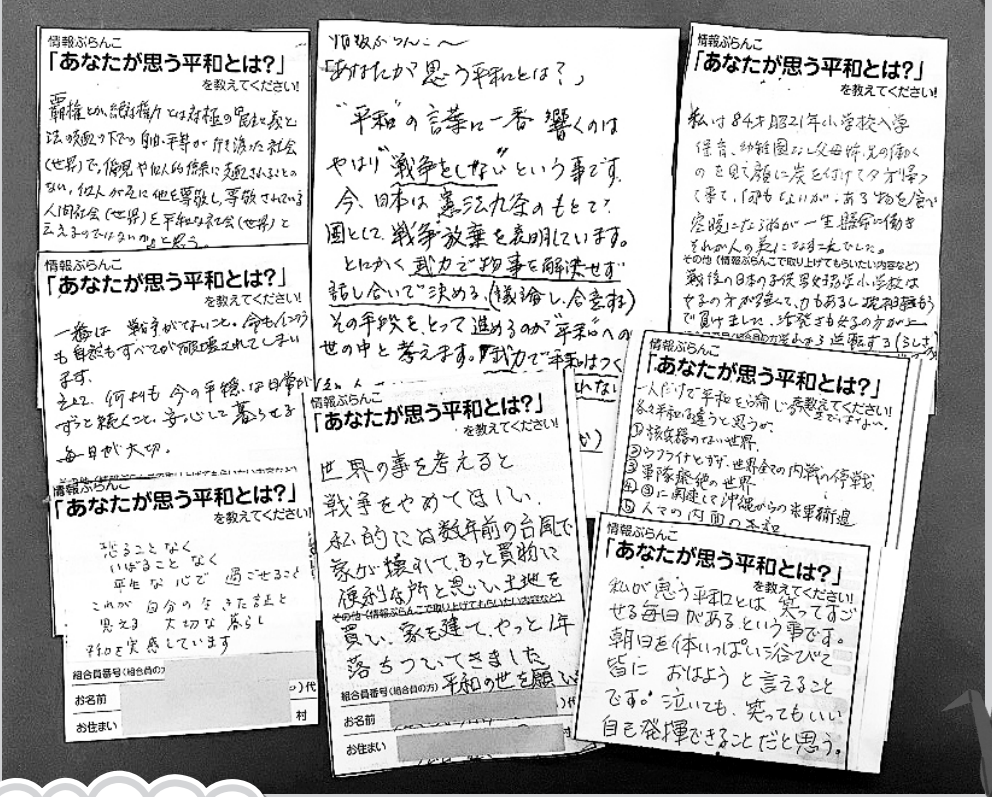 情報ぶらんこ
「あなたが思う平和とは?」
を教えてください!
覇権とか、絶対権力とは対極の民主主義と
法の支配の下での自由・平等が行き渡った社会
(世界)で、偏見や個人的信条に支配されることの
ない、個人が互に他を尊敬し、尊敬されている
人間社会(世界)を平和な社会(世界)と
言えるのではないかと思う。
情報ぶらんこ
「あなたが思う平和とは?」
を教えてください!
一番は 戦争がないこと。命もインフラ
も自然もすべてが破壊されてしまい
ます。
そして、何よりも今の平穏な日常が
ずっと続くこと、安心して暮らせる
毎日が大切。
情報ぶらんこ
「あなたが思う平和とは?」
を教えてください!
恐ることなく
いばることなく
平生な心で 過ごせること
これが 自分の生きた証と
思える 大切な暮らし
平和を実感しています
組合員番号(組合員の方)
お名前
代
お住まい
村
情報ぶらんこ〜
「あなたが思う平和とは?」
"平和"の言葉に一番響くのは
やはり"戦争をしない"という事です。
今、日本は憲法九条のもとで、
国として、戦争放棄を表明しています。
とにかく武力で物事を解決せず
話し合いで決める、(議論し、合意する)
その手段をとって進めるのが"平和"への
世の中と考えます。"武力で平和はつく
れない
情報ぶらんこ
「あなたが思う平和とは?」
を教えてください!
世界の事を考えると
戦争をやめてほしい、
私的には数年前の台風で
家が壊れて、もっと買物に
便利な所と思い土地を
その他(情報ぶらんこで取り上げてもらいたい内容など)
買い、家も建て、やっと1年
落ちついてきました
平和の世を願い
組合員番号(組合員の方)
お名前
代
お住まい
村
情報ぶらんこ
「あなたが思う平和とは?」
を教えてください!
私は84才昭21年小学校入学
保育、幼稚園なし父母姉兄の働く
のを見て顔に炭を付けて夕方帰っ
て来て、何でもよいが、ある物を食べ
一生懸命に働き
それが人の為になすこれでした。
その他(情報ぶらんこで取り上げてもらいたい内容など)
戦後の日本の子供男女
女子の方が強くて、力もあるし
で負けました、活発さも女子の方が上
逆転する
情報ぶらんこ
「あなたが思う平和とは?」
を教えてください!
一人だけで平和を論じる
各々平和は違うと思うが、
①核兵器のない世界
②ウクライナとガザ、世界全ての内戦の停戦
③軍隊廃絶の世界
④③に関連して沖縄からの米軍撤退
⑤人々の内面の平和
情報ぶらんこ
「あなたが思う平和とは?」
を教えてください!
私が思う平和とは、笑ってすご
せる毎日がある、という事です。
朝日を体いっぱいに浴びて
皆に おはよう と言えること
です。泣いても、笑ってもいい
自己発揮できることだと思う。